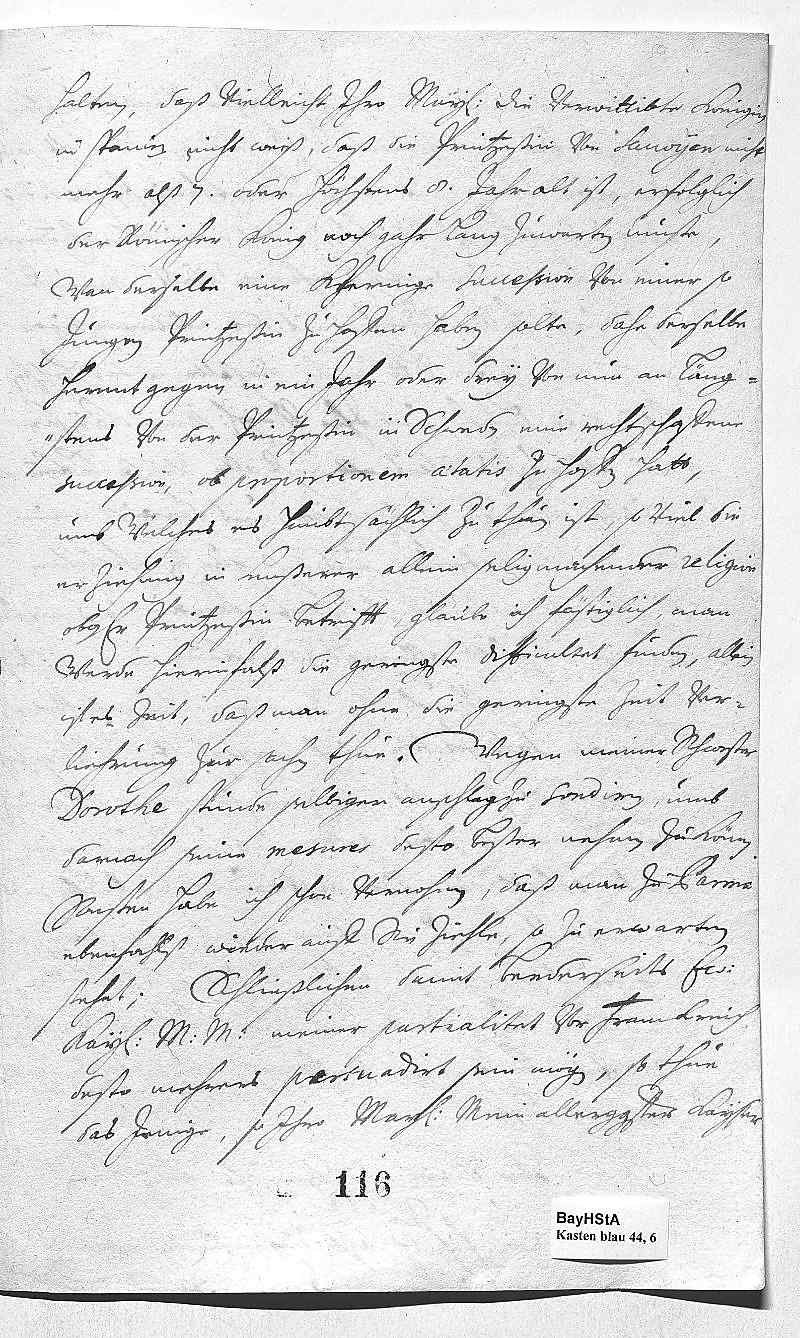 halten, daß Vielleicht Ihro Mayt: die Verwittibte Königin
in spanien nicht weiß, daß die Printzeßin Von Sauoÿen nicht
mehr alß 7. oder höchstens 8. Jahr alt ist, erfolglich
der Römischer König noch gahr lang Zuwarten müste,
Wan derselbe eine succession Von einer so
Jungen Printzeßin Zu hoffen haben solte, dahe derselbe
hernnt gegen in ein Jahr oder dreÿ Von nun an läng=
"stens Von der Printzeßin in Schweden eine rechtschaffene
succession, ob proportionem ætatis Zu hoffen hatt,
umb Welches es haubtsächlich Zu thun ist, so Viel die
erziehung in unserer allein seligmachender religion
obger Printzeßin betrifft, glaube ich festiglich, man
Werde hierinfalß die geringste difficultet finden, allein
ist es Zeit, daß man ohne die geringste Zeit Ver=
liehrung Zur sachen thue. Wegen meiner Schwester
Dorothe stünde selbiger anschlag zu sondiren, umb
darnach seine mesures desto besser nehmen Zu können
Sonsten habe ich schon Vernohmen, daß man Zu Parma
ebenfahlß wieder auff Sie Ziehle, so Zu erwarten
stehet; Schließlichen damit beederseits Ew:
Kaÿl: M: M: meiner partialitet Vor Franckreich
desto mehrers persuadirt sein mögen, so thue
das Jenige, so Ihro Maÿt: Mein allergster Kaÿser
116
BayHStA
Kasten blau 44, 6